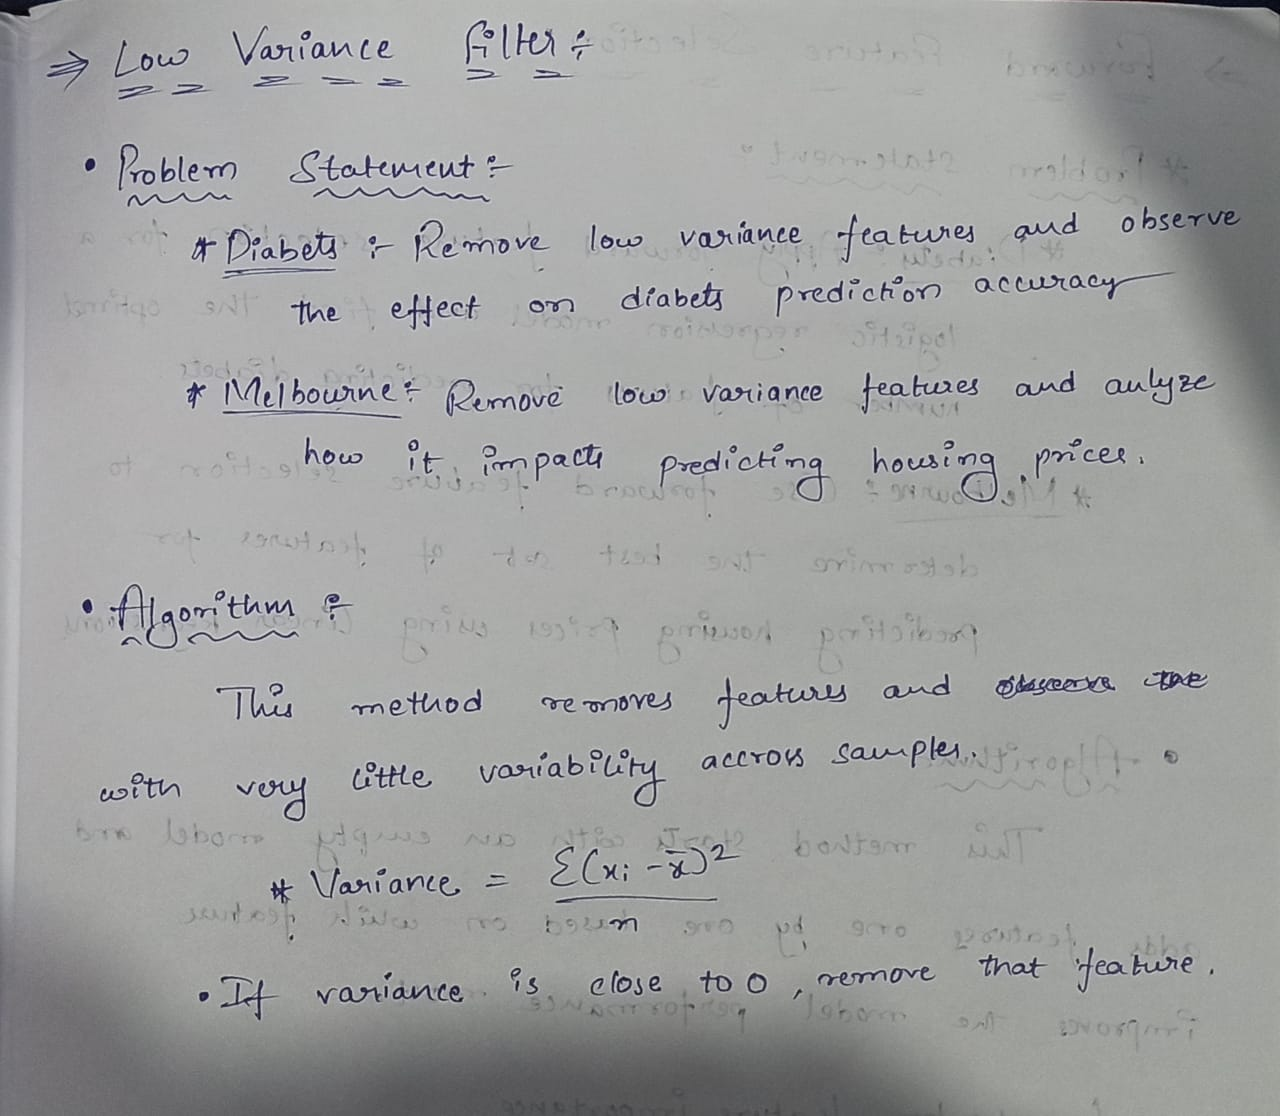 ⇒ Low Variance Filter :-
• Problem Statement :-
* Diabets :- Remove low variance features and observe
the effect on diabets prediction accuracy
* Melbourne :- Remove low variance features and anlyze
how it impacts predicting housing prices.
• Algorithm :-
This method removes features and observe the
with very little variability accross samples.
* Variance = Σ(xi - x̄)²
n
• If variance is close to 0, remove that feature.